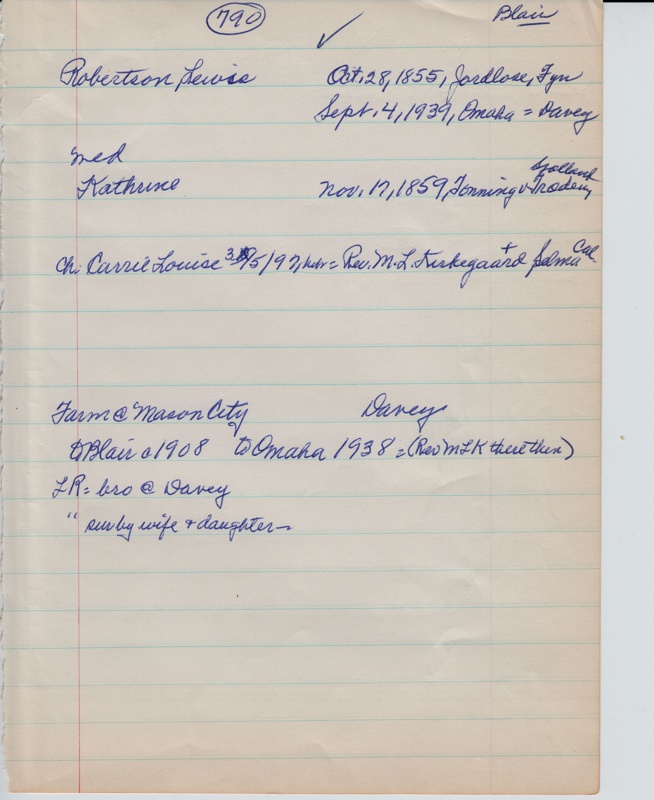 790
Blair
Robertson Lewis Oct. 28, 1855, Jordlose, Fyn
Sept. 4, 1939, Omaha = Davey
med
Kathrine Nov. 17, 1859,
ch: Carrie Louise /5/97, = Rev. M. L. Kirkegaard + Selma Cal
Farm @ Mason City Davey
to Blair c 1908 to Omaha 1938 = (Rev MLK there then)
LR = bro @ Davey
" sur by wife + daughter —